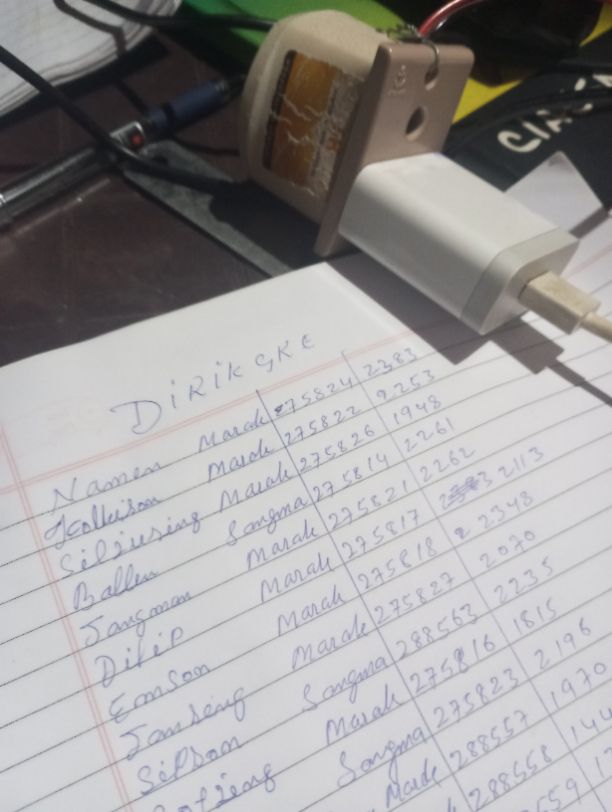 DIRIKGRE
Namen Marak 275824 2383
Kollinson Marak 275822 2253
Silsusing Marak 275826 1948
Ballen Sangma 275814 2261
Jangman Marak 275821 2262
Dilip Marak 275817 2113
Emson Marak 275818 2348
Jamseng Marak 275827 2070
Silson Sangma 288563 2235
Marak 275816 1815
Sangma 275823 2196
Marak 288557 1970
288558 144
559